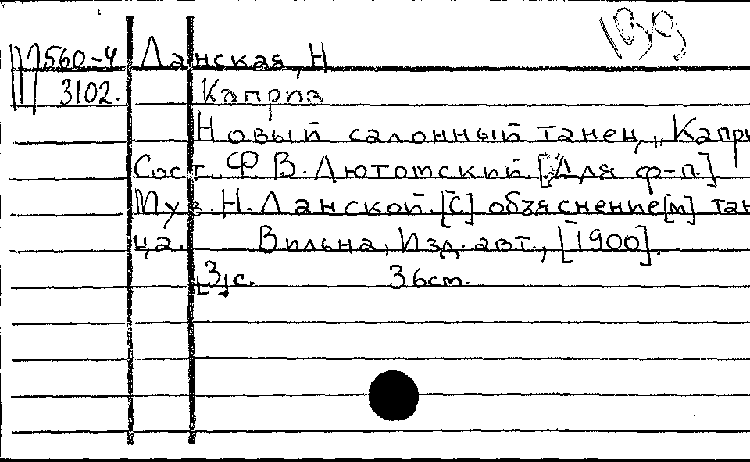 139
560-4 Ланская, Н
3102. Каприз
Новый салонный танец „Капри
Сост. Ф. В. Лютомский. [Для ф-п.]
Муз. Н. Ланской. [С] объяснение[м] тан
ца. Вильна, Изд. авт., [1900].
[3]с. 36см.